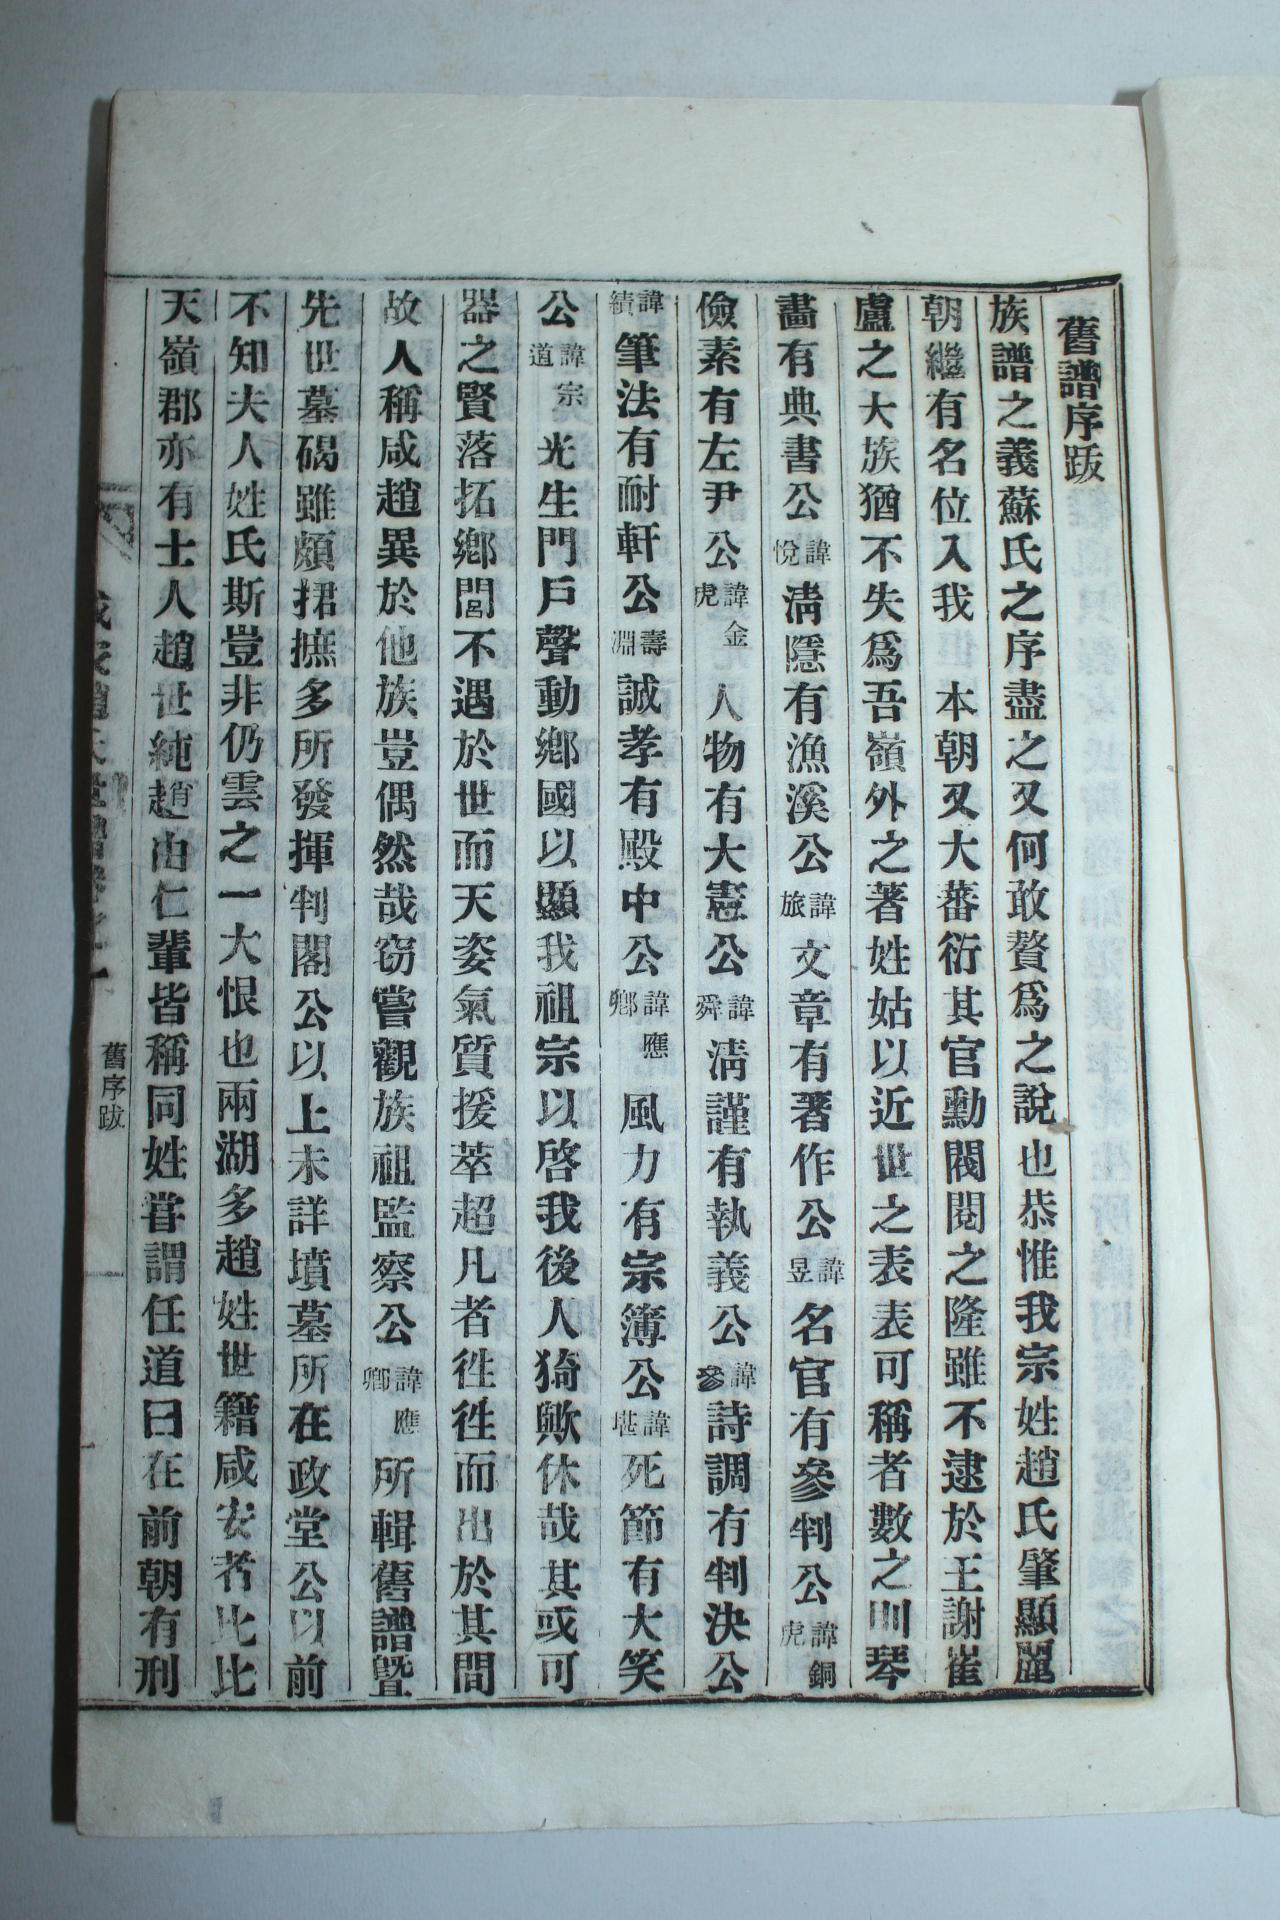 舊譜序跋
族譜之義蘇氏之序盡之又何敢贅爲之說也恭惟我宗姓趙氏肇顯麗
朝繼有名位入我 本朝又大蕃衍其官勳閥閱之隆雖不逮於王謝崔
盧之大族猶不失爲吾嶺外之著姓姑以近世之表表可稱者數之則琴
畵有典書公諱悅淸隱有漁溪公諱旅文章有著作公諱昱名官有參判公諱銅虎
儉素有左尹公諱金虎人物有大憲公諱舜淸謹有執義公諱參詩調有判決公
諱績筆法有耐軒公壽淵誠孝有殿中公諱應卿風力有宗簿公諱堪死節有大笑
公諱宗道光生門戶聲動鄕國以顯我祖宗以啓我後人猗歟休哉其或可
器之賢落拓鄕閭不遇於世而天姿氣質援萃超凡者徃徃而出於其間
故人稱咸趙異於他族豈偶然哉窃嘗觀族祖監察公諱應卿所輯舊譜曁
先世墓碣雖頗捃摭多所發揮判閣公以上未詳墳墓所在政堂公以前
不知夫人姓氏斯豈非仍雲之一大恨也兩湖多趙姓世籍咸安者比比
天嶺郡亦有士人趙世純趙由仁輩皆稱同姓甞謂任道曰在前朝有刑
舊序跋